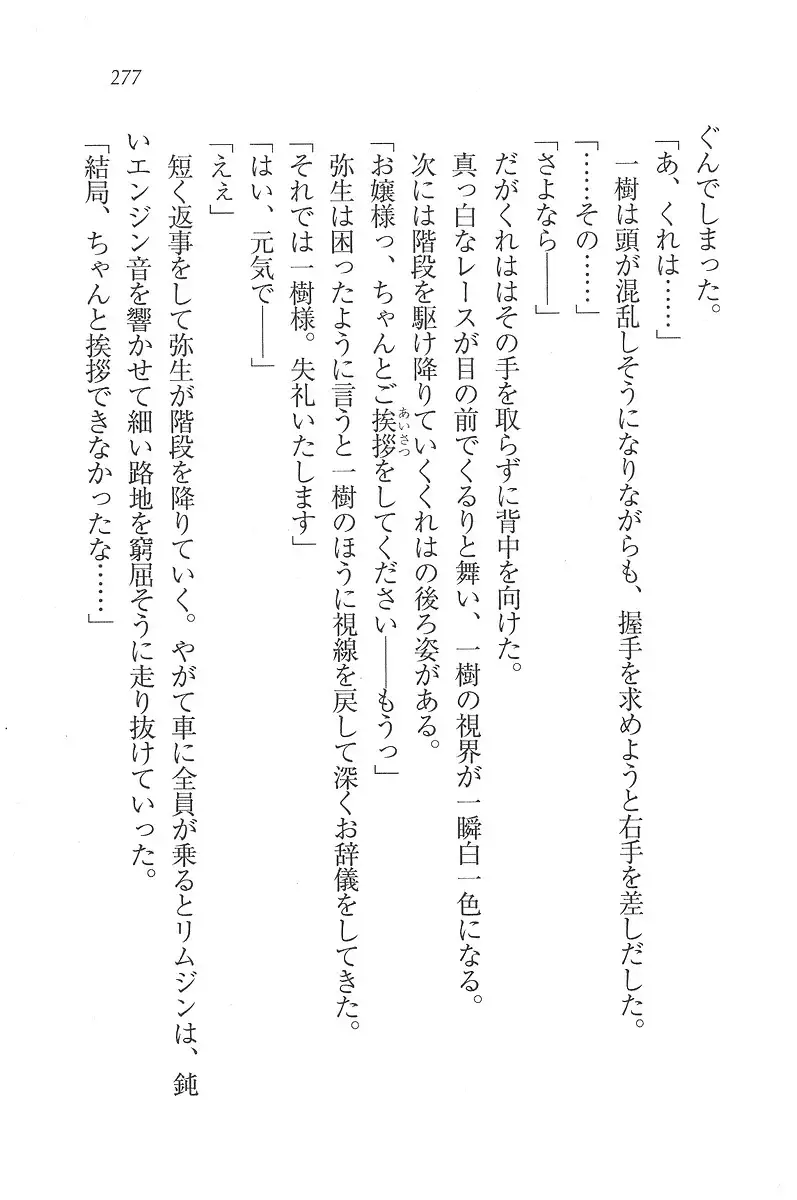 277
ぐんでしまった。
「あ、くれは……」
一樹は頭が混乱しそうになりながらも、握手を求めようと右手を差しだした。
「……その……」
「さよなら――」
だがくれははその手を取らずに背中を向けた。
真っ白なレースが目の前でくるりと舞い、一樹の視界が一瞬白一色になる。
次には階段を駆け降りていくくれはの後ろ姿がある。
「お嬢様っ、ちゃんとご挨拶をしてください――もうっ」
あいさつ
弥生は困ったように言うと一樹のほうに視線を戻して深くお辞儀をしてきた。
「それでは一樹様。失礼いたします」
「はい、元気で――」
「えぇ」
短く返事をして弥生が階段を降りていく。やがて車に全員が乗るとリムジンは、鈍
いエンジン音を響かせて細い路地を窮屈そうに走り抜けていった。
「結局、ちゃんと挨拶できなかったな……」